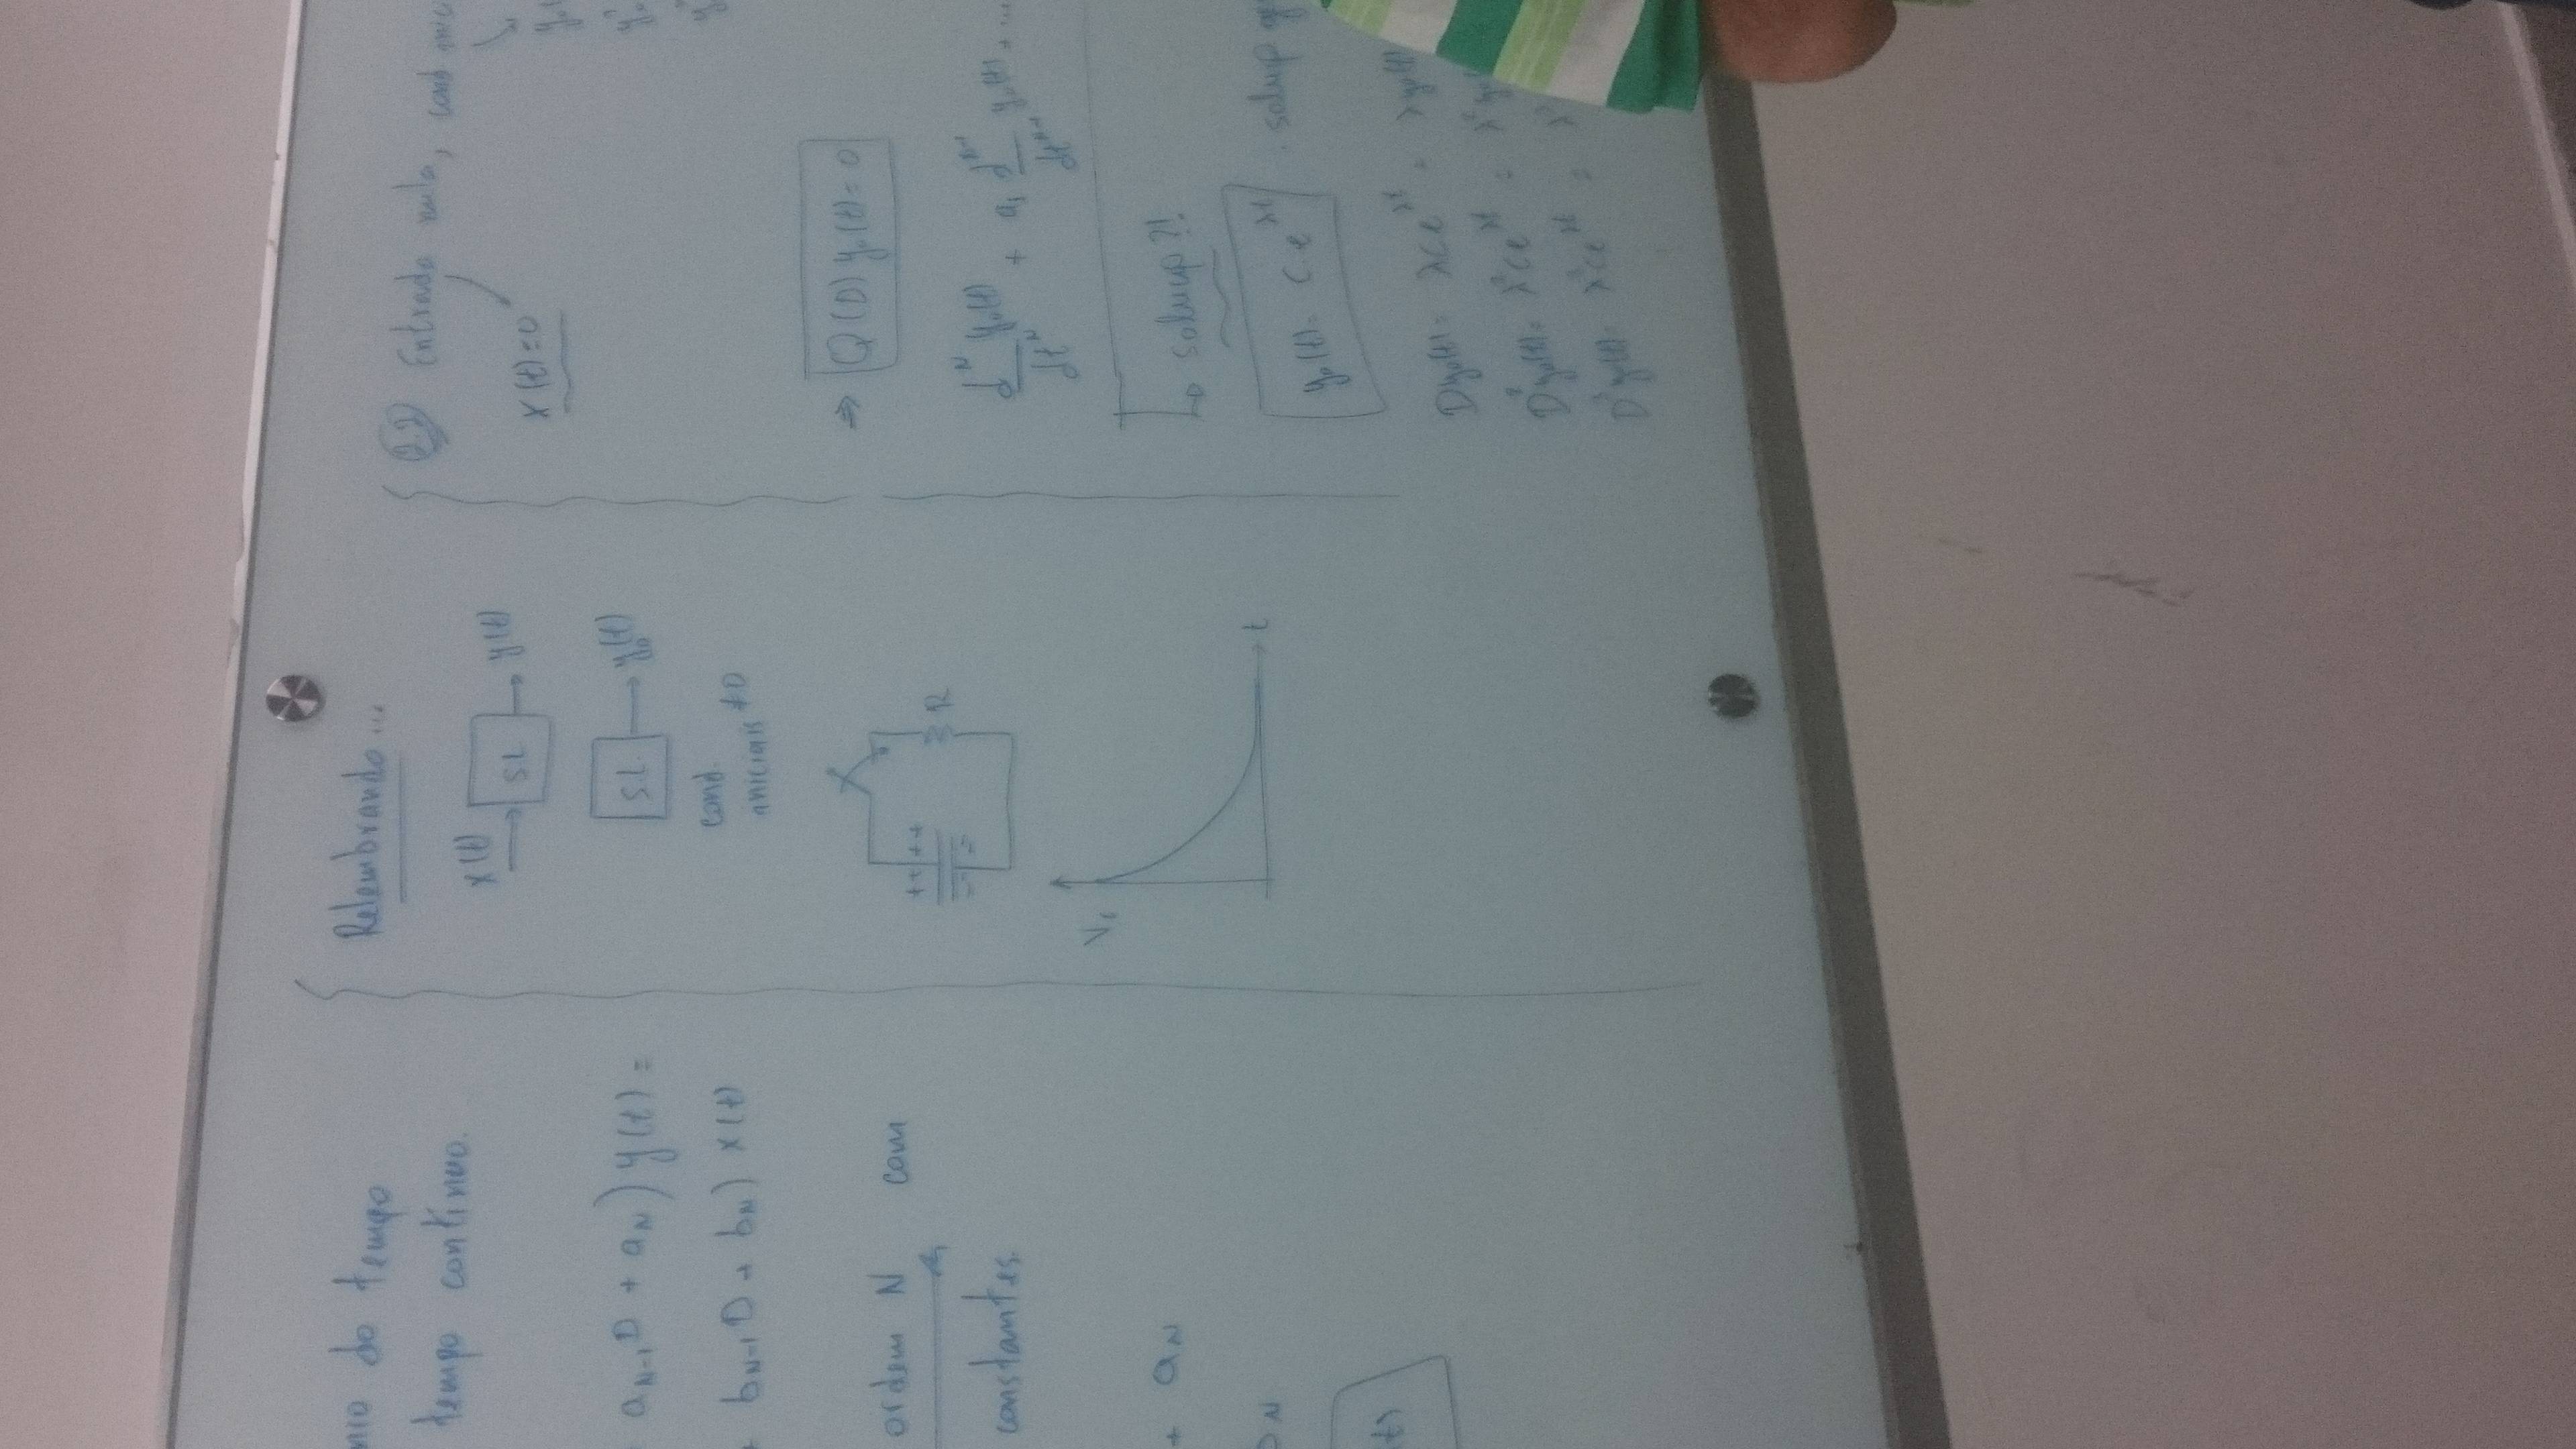 do tempo
tempo contínuo.
a_{N-1} D + a_N) y(t) =
b_{N-1} D + b_N) x(t)
ordem N com
constantes.
+ a_N
Relembrando...
x(t) → SL → y(t)
SL → y_0(t)
cond.
iniciais ≠0
+ + + +
R
V_c
t
2.2) Entrada nula, cond
x(t) = 0
⇒ Q(D) y_0(t) = 0
d^N y_0(t) / dt^N + a_1 d^{N-1} / dt^{N-1} y_0(t) + ...
↳ solução ?!
y_0(t) = C e^{λt}
Dy_0(t) = λ C e^{λt} = λ y_0(t)
D² y_0(t) = λ² C e^{λt} =
D³ y_0(t) = λ³ C e^{λt} =